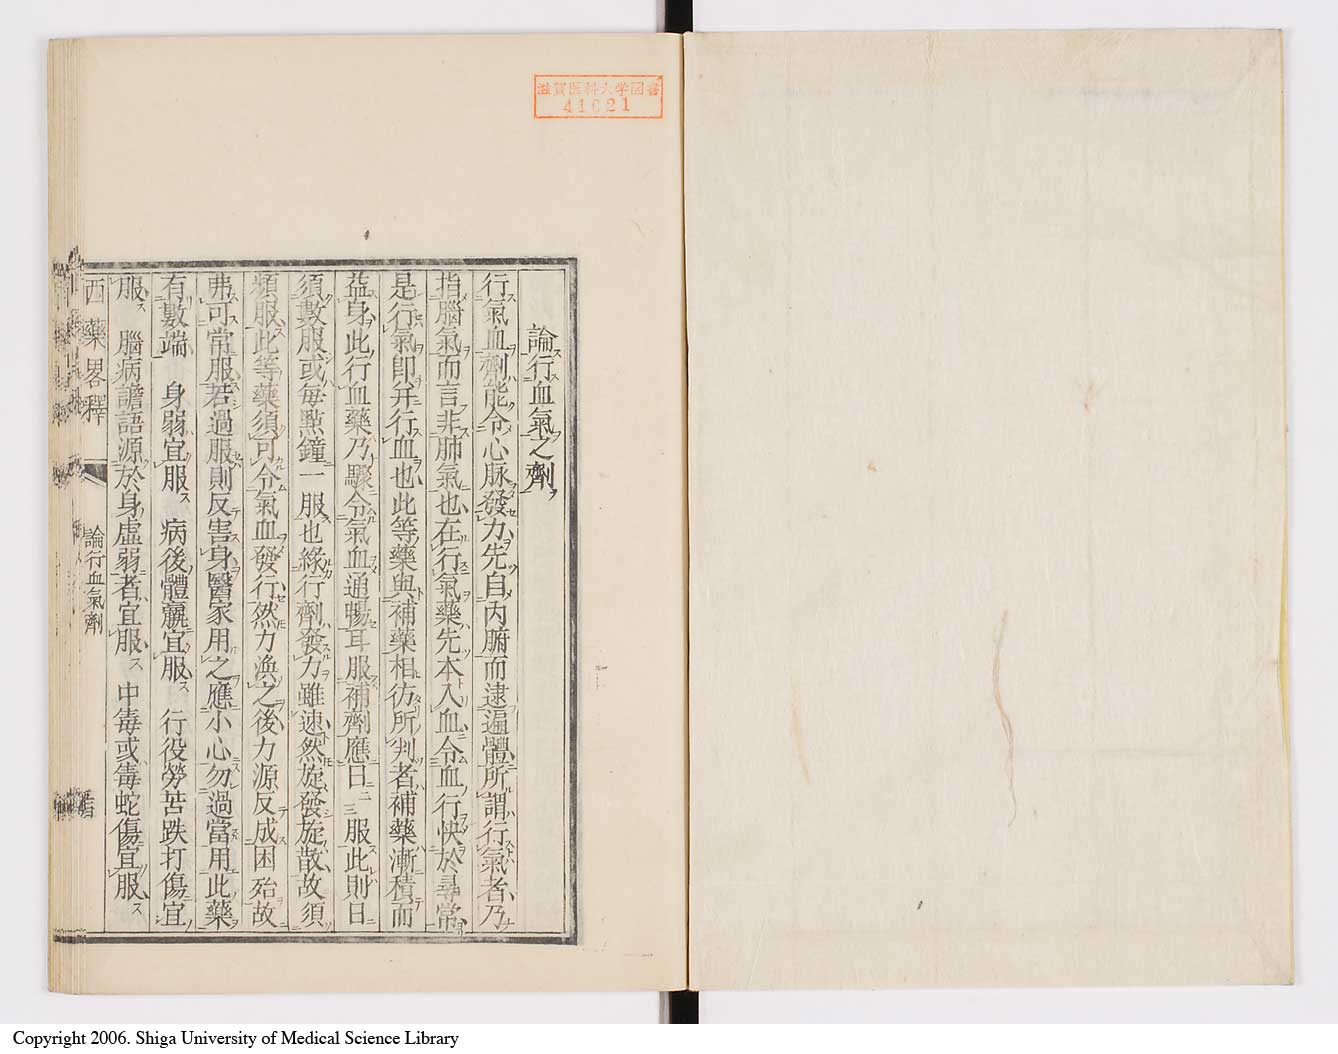 滋賀医科大学図書
41021
論行血氣之劑
行氣血劑能令心脉發力先自內腑而逮遍體所謂行氣者乃
指腦氣而言非肺氣也在行氣藥先本入血令血行快於尋常
是行氣即并行血也此等藥與補藥相彷所判者補藥漸積而
益身此行血藥乃驟令氣血通暢耳服補劑應日二三服此則日
須數服或每點鐘一服也緣行劑發力雖速然旋發旋散故須
頻服此等藥須可令氣血發行然力渙之後力源反成困殆故
弗可常服若過服則反害身醫家用之應小心勿過當用此藥
有數端 身弱宜服 病後體羸宜服 行役勞苦跌打傷宜
服 腦病譫語源於身虛弱者宜服 中毒或毒蛇傷宜服
西藥畧釋
論行血氣劑
Copyright 2006. Shiga University of Medical Science Library